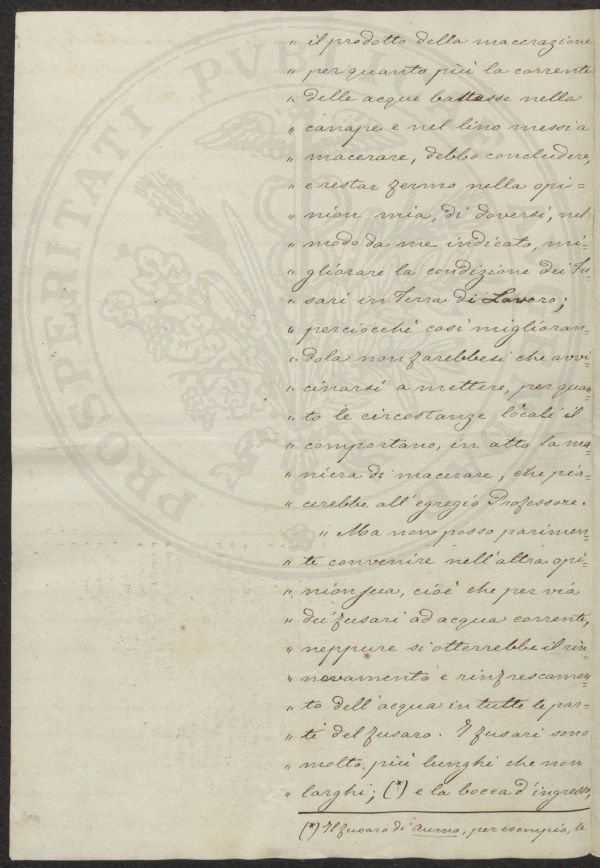 " il prodotto della macerazione
" per quanto più la corrente
" delle acque battesse nella
" canape e nel lino messi a
" macerare, debbo concludere,
" e restar fermo nella opi=
" nion mia, di doversi, nel
" modo da me indicato, mi=
" gliorare la condizione dei Fu=
" sari in Terra di Lavoro;
" perciocchè così miglioran=
" dola non farebbesi che avvi=
" cinarsi a mettere, per quan=
" to le circostanze locali il
" comportano, in atto la ma=
" niera di macerare, che pia=
" cerebbe all'egregio Professore.
" " Ma non posso parimen=
" te convenire nell'altra opi=
" nion sua, cioè che per via
" dei fusari ad acqua corrente,
" neppure si otterrebbe il rin=
" novamento e rinfrescamen=
" to dell'acqua in tutte le par=
" ti del fusaro. I fusari sono
" molto più lunghi che non
" larghi; (*) e la bocca d'ingresso,
(*) Il fusaro di Aurno, per esempio, le
PROSPERITATI PUBLICAE